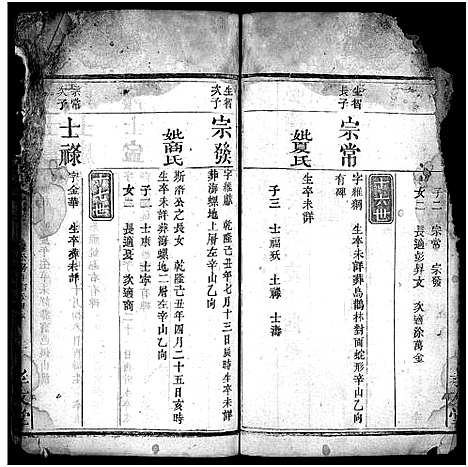 子二 宗常 宗發
女二 長適彭昇文 次適徐萬金
十六世
生智
長子
宗常
字維綱 生卒未詳葬烏鶴林對面蛇形辛山乙向
有碑
妣夏氏
生卒未詳
子三 士福夭 士祿 士壽
生智
次子
宗發
字維獻 乾隆己丑年七月十三日辰時生卒未詳
葬海螺地上層左辛山乙向
妣商氏
斯濟公之長女 乾隆己丑年四月二十五日亥時
生卒未詳葬海螺地二層左辛山乙向
子二 士庚 士寧
女二 長適 次適商
十七世
宗常
次子
士祿
字金華 生卒葬未詳